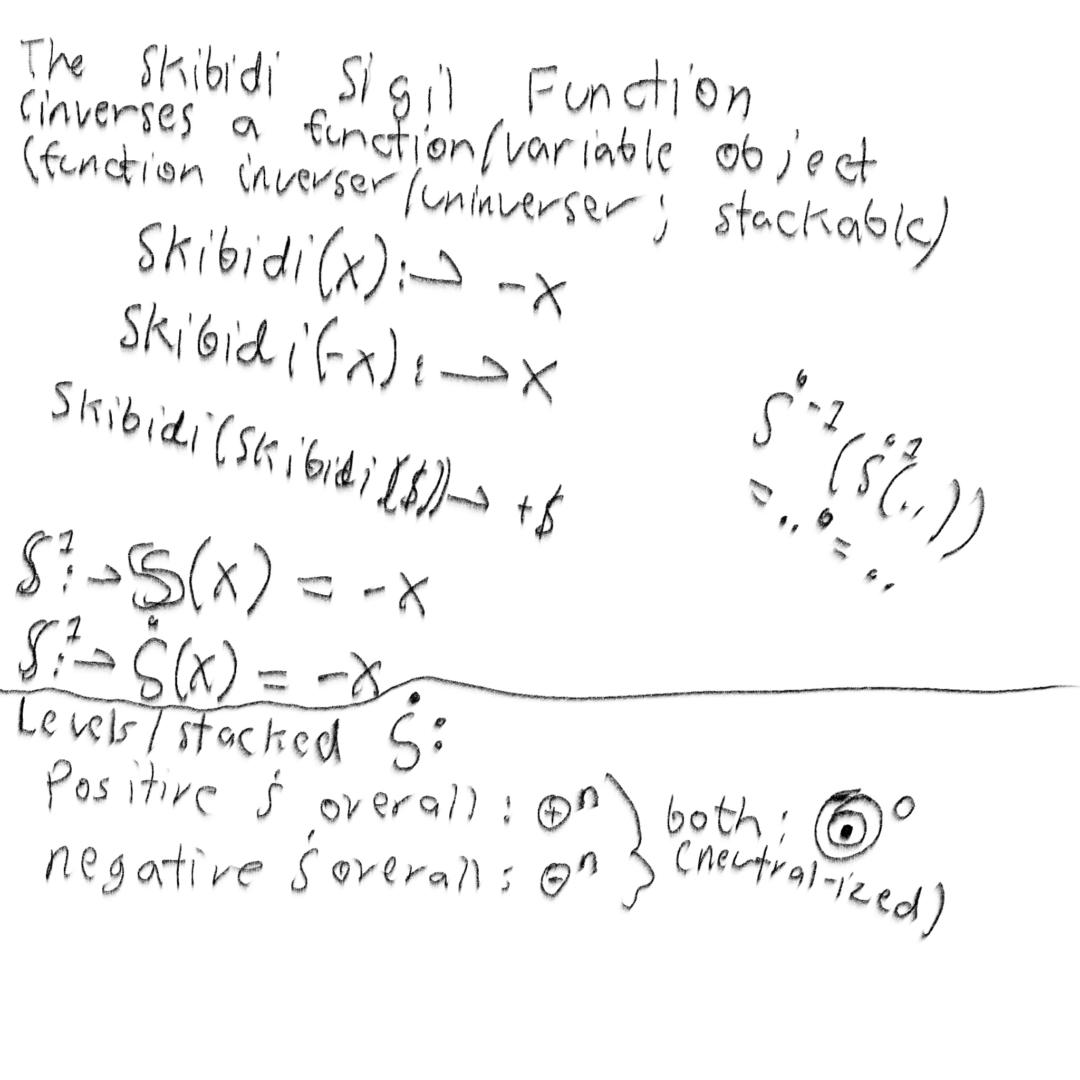 The Skibidi Sigil Function
(inverses a function/variable object
(function inverser/uninverser; stackable)
Skibidi(x):→ -x
Skibidi(-x):→x
Skibidi(Skibidi($))→ +$
Ṡ⁻¹(Ṡ¹(..))
= ..⁰
= ..
S¹:→S(x) = -x
S¹:→Ṡ(x) = -x
Levels/stacked Ṡ:
Positive Ṡ overall: ⊕ⁿ } both: ⊙⁰
negative Ṡ overall: ⊖ⁿ } (neutral-ized)